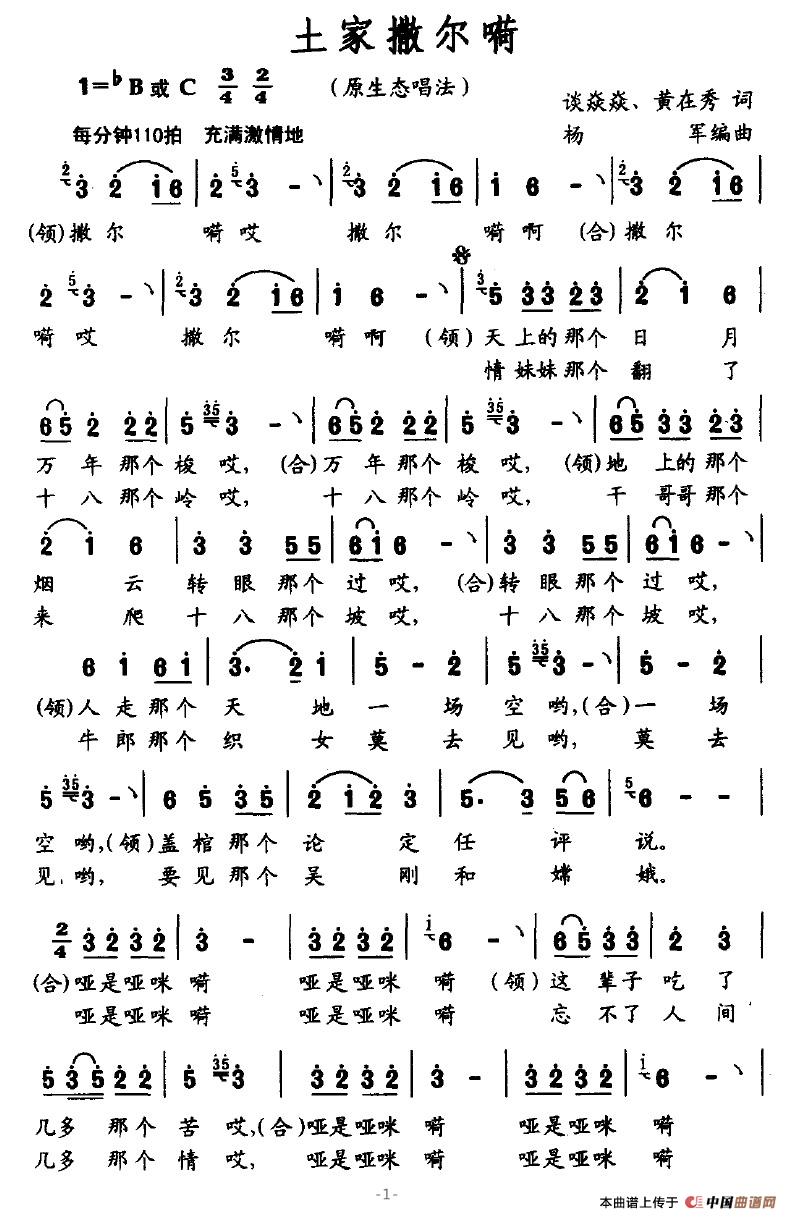 土家撒尔嗬
1=♭B或C 3/4 2/4 (原生态唱法)
谈焱焱、黄在秀 词
每分钟110拍 充满激情地
杨 军编曲
(领)撒尔 嗬哎 撒尔 嗬啊 (合)撒尔
嗬哎 撒尔 嗬啊 (领)天上的那个 日 月
情妹妹那个 翻 了
万年那个梭哎,(合)万年那个梭哎,(领)地上的那个
十八那个岭哎, 十八那个岭哎, 干哥哥那个
烟 云 转眼那个过哎, (合)转眼那个过哎,
来 爬 十八那个坡哎, 十八那个坡哎,
(领)人走那个天 地一 场空哟,(合)一 场
牛郎那个织 女莫 去见哟, 莫去
空哟,(领)盖棺那个论 定任 评说。
见哟, 要见那个吴 刚和 嫦娥。
2/4
(合)哑是哑咪嗬 哑是哑咪嗬 (领)这辈子吃了
哑是哑咪嗬 哑是哑咪嗬 忘不了人间
几多那个苦哎,(合)哑是哑咪嗬 哑是哑咪嗬
几多那个情哎, 哑是哑咪嗬 哑是哑咪嗬
-1-
本曲谱上传于 中国曲谱网